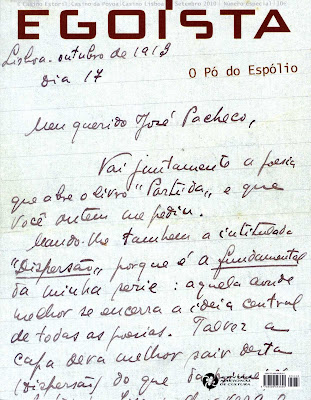 Casino Estoril, Casino da Póvoa, Casino Lisboa | Setembro 2010 | Número Especial |
EGOÍSTA
Lisboa - outubro de 1913
Dia 17
O Pó do Espólio
Meu querido José Pacheco,
Vai juntamente a poesia
que abre o livro "Partida", e que
Você ontem me pediu.
Mando-lhe tambem a intitulada
"Dispersão" porque é a fundamental
da minha serie: aquela aonde
melhor se encerra a ideia central
de todas as poesias. Talvez a
capa deva melhor sair desta
(Dispersão) do que da